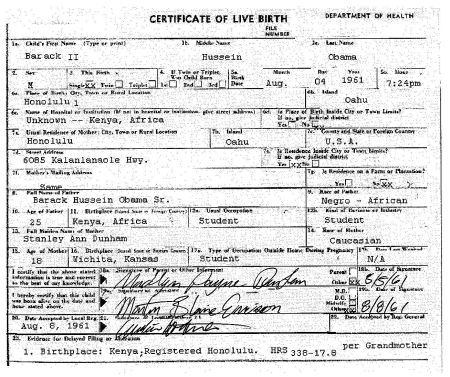 CERTIFICATE OF LIVE BIRTH
DEPARTMENT OF HEALTH
FILE NUMBER
1a. Child's First Name (Type or print) 1b. Middle Name 1c. Last Name
Barack II Hussein Obama
2. Sex 3. This Birth 4. If Twin or Triplet, Was Child Born 5a. Birth Date Month Day Year 5b. Hour
M Single XX Twin Triplet 1st 2nd 3rd Aug. 04 1961 7:24pm
6a. Place of Birth: City, Town or Rural Location 6b. Island
Honolulu 1 Oahu
6c. Name of Hospital or Institution (If not in hospital or institution, give street address) 6d. Is Place of Birth Inside City or Town Limits? If no, give judicial district
Unknown -- Kenya, Africa Yes No
7a. Usual Residence of Mother: City, Town or Rural Location 7b. Island 7c. County and State or Foreign Country
Honolulu Oahu U.S.A.
7d. Street Address 7e. Is Residence Inside City or Town Limits? If no, give judicial district
6085 Kalanianaole Hwy. Yes XX No
7f. Mother's Mailing Address 7g. Is Residence on a Farm or Plantation?
Same Yes No XX
8. Full Name of Father 9. Race of Father
Barack Hussein Obama Sr. Negro - African
10. Age of Father 11. Birthplace (Island, State or Foreign Country) 12a. Usual Occupation 12b. Kind of Business or Industry
25 Kenya, Africa Student Student
13. Full Maiden Name of Mother 14. Race of Mother
Stanley Ann Dunham Caucasian
15. Age of Mother 16. Birthplace (Island, State or Foreign Country) 17a. Type of Occupation Outside Home During Pregnancy 17b. Date Last Worked
18 Wichita, Kansas Student N/A
I certify that the above stated information is true and correct to the best of my knowledge. 18a. Signature of Parent or Other Informant Parent Other XX 18b. Date of Signature
Madelyn Payne Dunham 8/5/61
I hereby certify that this child was born alive on the date and hour stated above. 19a. Signature of M.D. D.O. Midwife Other 19b. Date of Signature
8/8/61
20. Date Accepted by Local Reg. 21. Signature of Local 22. Date Accepted by Reg. General
Aug. 8, 1961
23. Evidence for Delayed Filing or Alteration
1. Birthplace: Kenya; Registered Honolulu. HRS 338-17.8 per Grandmother